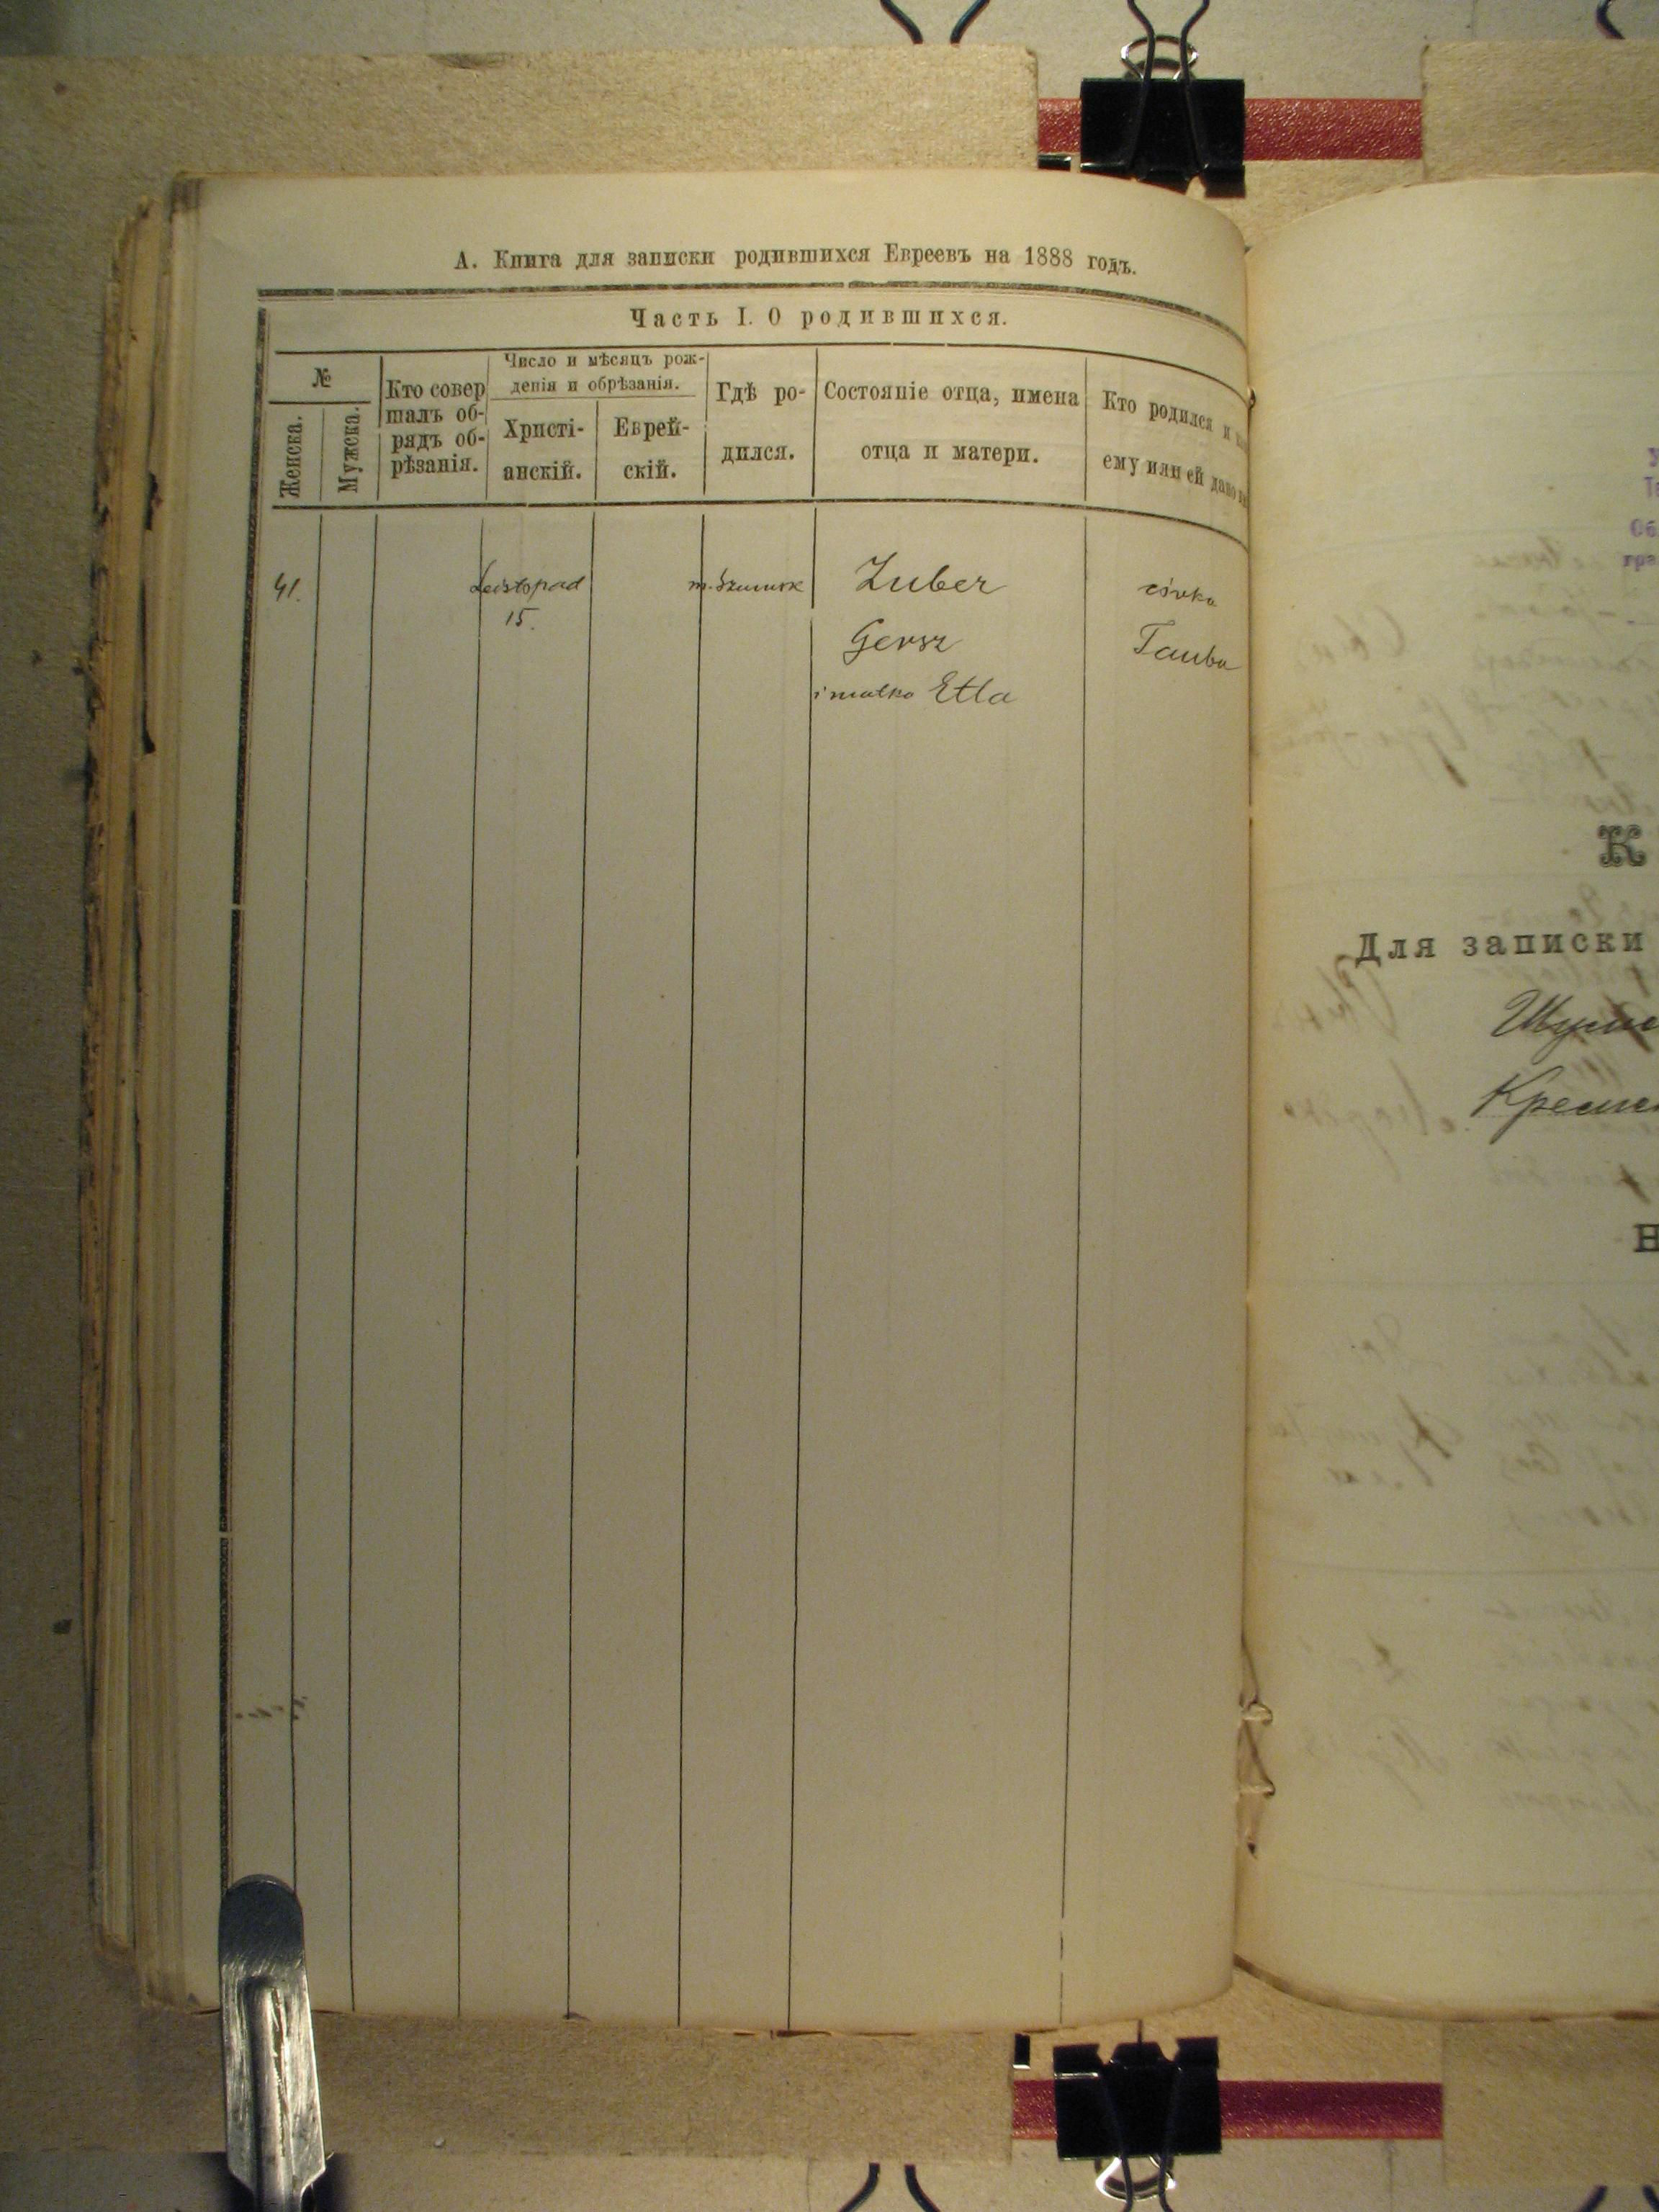 А. Книга для записки родившихся Евреевъ на 1888 годъ.
Часть I. О родившихся.
№
Женска.
Мужска.
Кто совер
шалъ об-
рядъ об-
рѣзанія.
Число и мѣсяцъ рож-
денія и обрѣзанія.
Христі-
анскій.
Еврей-
скій.
Гдѣ ро-
дился.
Состояніе отца, имена
отца и матери.
Кто родился и
ему или ей дано
41.
Listopad
15.
m. Szumsk
Zuber
Gersz
i matka Etla
córka
Tauba
К
Для записки
Шумс
Кремен
Н